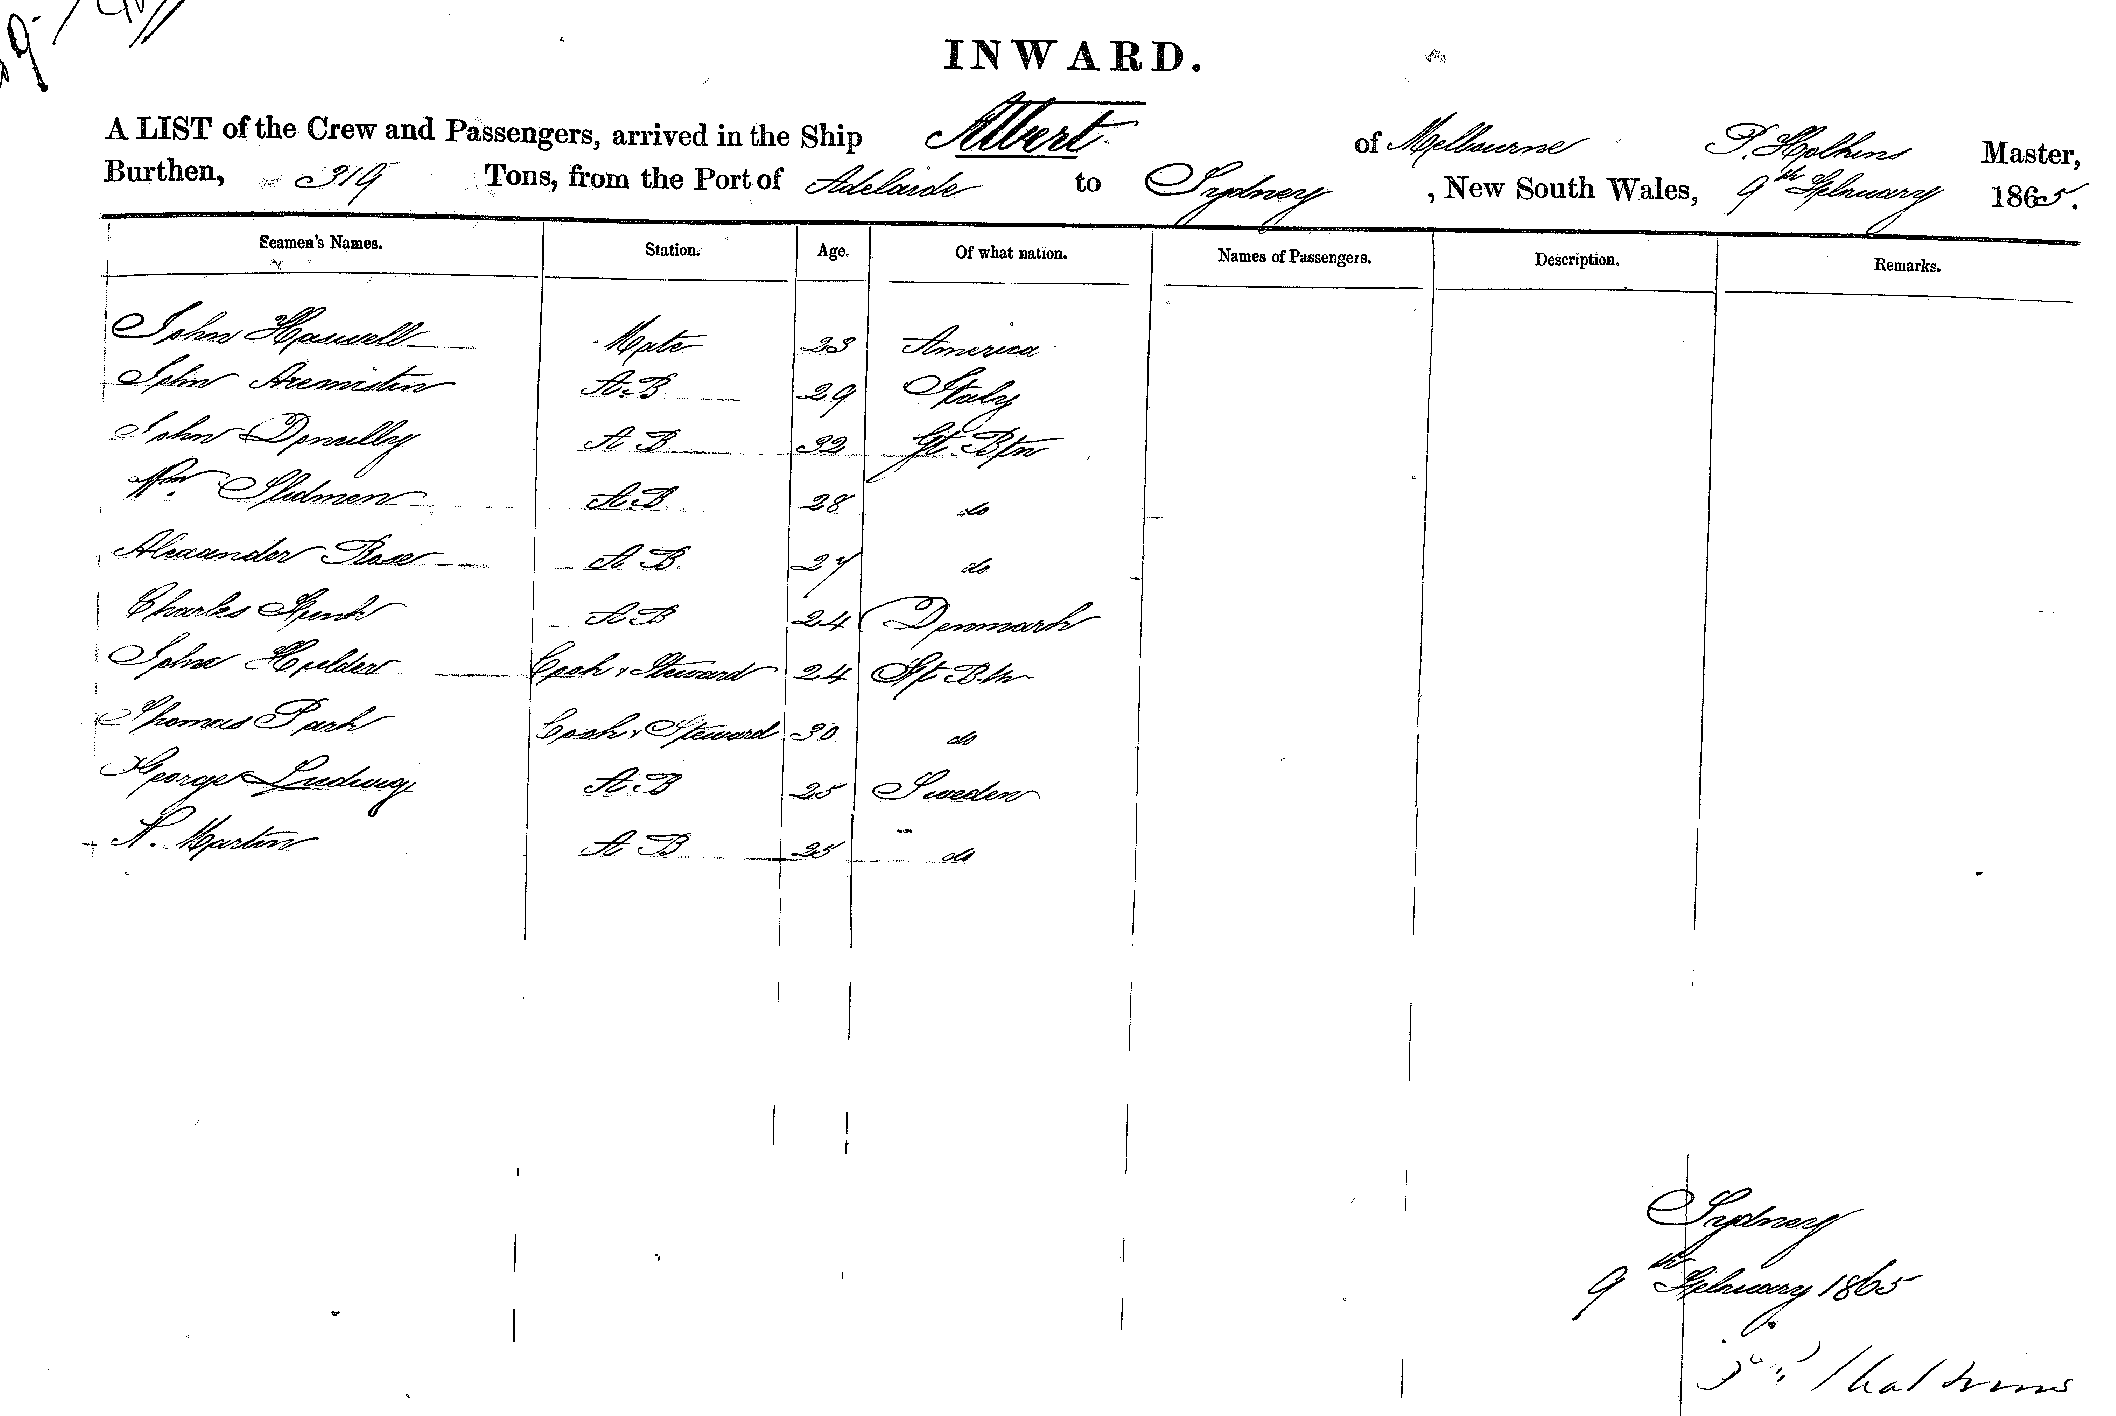 INWARD.
A LIST of the Crew and Passengers, arrived in the Ship Albert of Melbourne Master,
Burthen, 319 Tons, from the Port of Adelaide to Sydney, New South Wales, 9th February 1865.
Seamen's Names. Station. Age. Of what nation. Names of Passengers. Description. Remarks.
John Mate 23 America
John A.B 29 Italy
John Donnelly A B 32 Gt. Btn
Wm A.B 28 do
Alexander Rose A B 27 do
Charles A B 24 Denmark
John Cook & Steward 24 Gt Btn
Thomas Park Cook & Steward 30 do
George Ludwig A.B 25 Sweden
N. Martin A B 25 do
Sydney
9th February 1865